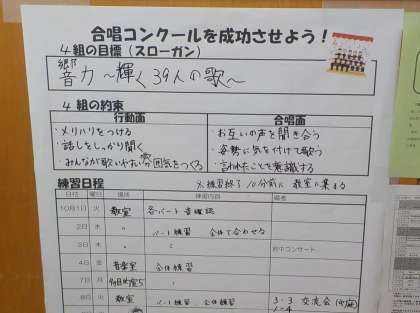 合唱コンクールを成功させよう！
4組の目標（スローガン）
響
音力 〜輝く39人の歌〜
4 組の約束
行動面 合唱面
・メリハリをつける ・お互いの声を聞き合う
・話しをしっかり聞く ・姿勢に気を付けて歌う
・みんなが歌いやすい雰囲気をつくる ・言われたことを意識する
練習日程 ※練習終了10分前に教室に集まる
日付 曜日 場所 練習内容 備考
10月1日 火 教室 各パート音確認
2日 水 〃 パート練習 全体で合わせる
3日 木 〃 〃 府中コンサート
4日 金 音楽室 全体練習
7日 月 多目的室
8日 火 教室 パート練習 全体練習 3-3 交流会